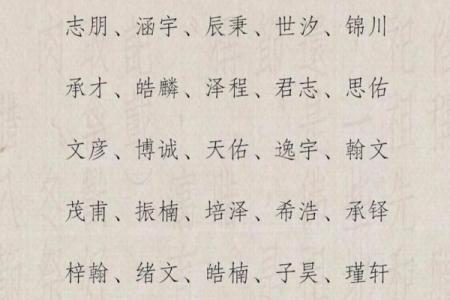 志朋、涵宇、辰秉、世汐、锦川
承才、皓麟、泽程、君志、思佑
文彦、博诚、天佑、逸宇、翰文
茂甫、振楠、培泽、希浩、承铎
梓翰、绪文、皓楠、子昊、瑾轩